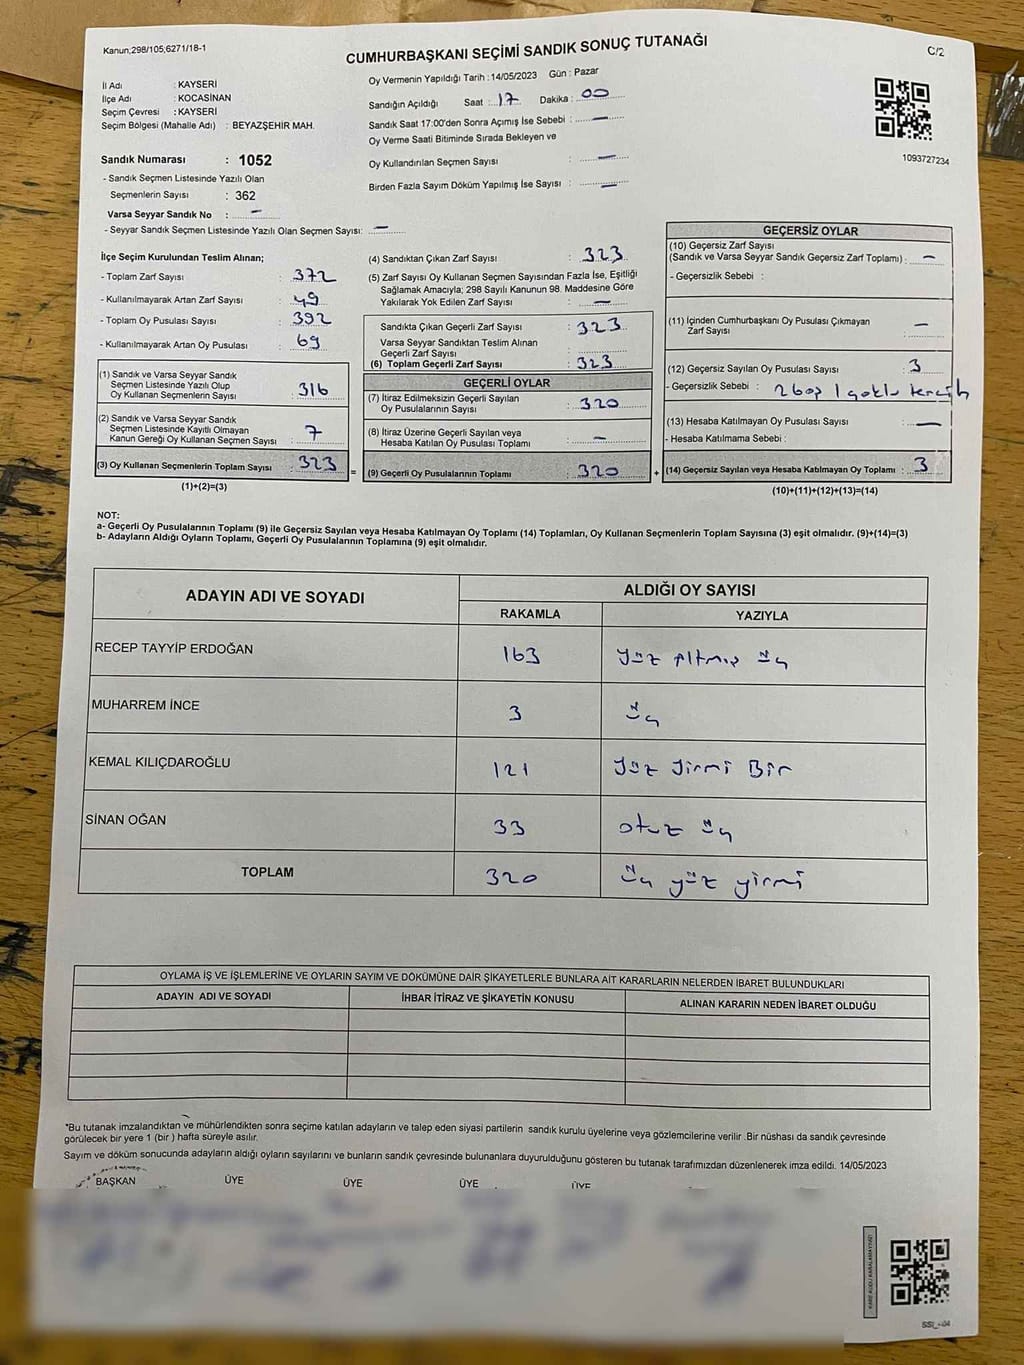 Kanun;298/105;6271/18-1
CUMHURBAŞKANI SEÇİMİ SANDIK SONUÇ TUTANAĞI
C/2
İl Adı : KAYSERİ
İlçe Adı : KOCASİNAN
Seçim Çevresi : KAYSERİ
Seçim Bölgesi (Mahalle Adı) : BEYAZŞEHİR MAH.
Sandık Numarası : 1052
- Sandık Seçmen Listesinde Yazılı Olan
Seçmenlerin Sayısı : 362
Varsa Seyyar Sandık No : -
- Seyyar Sandık Seçmen Listesinde Yazılı Olan Seçmen Sayısı: -
Oy Vermenin Yapıldığı Tarih : 14/05/2023 Gün : Pazar
Sandığın Açıldığı Saat : 17 Dakika : 00
Sandık Saat 17:00'den Sonra Açımış İse Sebebi : -
Oy Verme Saati Bitiminde Sırada Bekleyen ve
Oy Kullandırılan Seçmen Sayısı : -
Birden Fazla Sayım Döküm Yapılmış İse Sayısı : -
1093727234
İlçe Seçim Kurulundan Teslim Alınan;
- Toplam Zarf Sayısı : 372
- Kullanılmayarak Artan Zarf Sayısı : 49
- Toplam Oy Pusulası Sayısı : 392
- Kullanılmayarak Artan Oy Pusulası : 69
(1) Sandık ve Varsa Seyyar Sandık
Seçmen Listesinde Yazılı Olup
Oy Kullanan Seçmenlerin Sayısı : 316
(2) Sandık ve Varsa Seyyar Sandık
Seçmen Listesinde Kayıtlı Olmayan
Kanun Gereği Oy Kullanan Seçmen Sayısı : 7
(3) Oy Kullanan Seçmenlerin Toplam Sayısı : 323
(1)+(2)=(3)
(4) Sandıktan Çıkan Zarf Sayısı : 323
(5) Zarf Sayısı Oy Kullanan Seçmen Sayısından Fazla İse, Eşitliği
Sağlamak Amacıyla; 298 Sayılı Kanunun 98. Maddesine Göre
Yakılarak Yok Edilen Zarf Sayısı : -
Sandıkta Çıkan Geçerli Zarf Sayısı : 323
Varsa Seyyar Sandıktan Teslim Alınan
Geçerli Zarf Sayısı :
(6) Toplam Geçerli Zarf Sayısı : 323
GEÇERLİ OYLAR
(7) İtiraz Edilmeksizin Geçerli Sayılan
Oy Pusulalarının Sayısı : 320
(8) İtiraz Üzerine Geçerli Sayılan veya
Hesaba Katılan Oy Pusulası Toplamı : -
(9) Geçerli Oy Pusulalarının Toplamı : 320
GEÇERSİZ OYLAR
(10) Geçersiz Zarf Sayısı
(Sandık ve Varsa Seyyar Sandık Geçersiz Zarf Toplamı) : -
- Geçersizlik Sebebi :
(11) İçinden Cumhurbaşkanı Oy Pusulası Çıkmayan
Zarf Sayısı -
(12) Geçersiz Sayılan Oy Pusulası Sayısı : 3
- Geçersizlik Sebebi : 2 boş 1 çoklu tercih
(13) Hesaba Katılmayan Oy Pusulası Sayısı : -
- Hesaba Katılmama Sebebi :
(14) Geçersiz Sayılan veya Hesaba Katılmayan Oy Toplamı : 3
(10)+(11)+(12)+(13)=(14)
NOT:
a- Geçerli Oy Pusulalarının Toplamı (9) ile Geçersiz Sayılan veya Hesaba Katılmayan Oy Toplamı (14) Toplamları, Oy Kullanan Seçmenlerin Toplam Sayısına (3) eşit olmalıdır. (9)+(14)=(3)
b- Adayların Aldığı Oyların Toplamı, Geçerli Oy Pusulalarının Toplamına (9) eşit olmalıdır.
ADAYIN ADI VE SOYADI ALDIĞI OY SAYISI
RAKAMLA YAZIYLA
RECEP TAYYİP ERDOĞAN 163 Yüz Altmış üç
MUHARREM İNCE 3 üç
KEMAL KILIÇDAROĞLU 121 Yüz Yirmi Bir
SİNAN OĞAN 33 otuz üç
TOPLAM 320 üç yüz yirmi
OYLAMA İŞ VE İŞLEMLERİNE VE OYLARIN SAYIM VE DÖKÜMÜNE DAİR ŞİKAYETLERLE BUNLARA AİT KARARLARIN NELERDEN İBARET BULUNDUKLARI
ADAYIN ADI VE SOYADI İHBAR İTİRAZ VE ŞİKAYETİN KONUSU ALINAN KARARIN NEDEN İBARET OLDUĞU
*Bu tutanak imzalandıktan ve mühürlendikten sonra seçime katılan adayların ve talep eden siyasi partilerin sandık kurulu üyelerine veya gözlemcilerine verilir .Bir nüshası da sandık çevresinde
görülecek bir yere 1 (bir ) hafta süreyle asılır.
Sayım ve döküm sonucunda adayların aldığı oyların sayılarını ve bunların sandık çevresinde bulunanlara duyurulduğunu gösteren bu tutanak tarafımızdan düzenlenerek imza edildi. 14/05/2023
BAŞKAN ÜYE ÜYE ÜYE ÜYE
KARE KODU KARALAMAYINIZ!